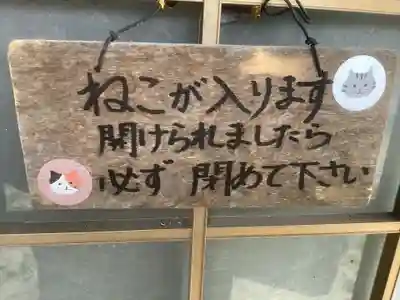 ねこが入ります
開けられましたら
必ず 閉めて下さい